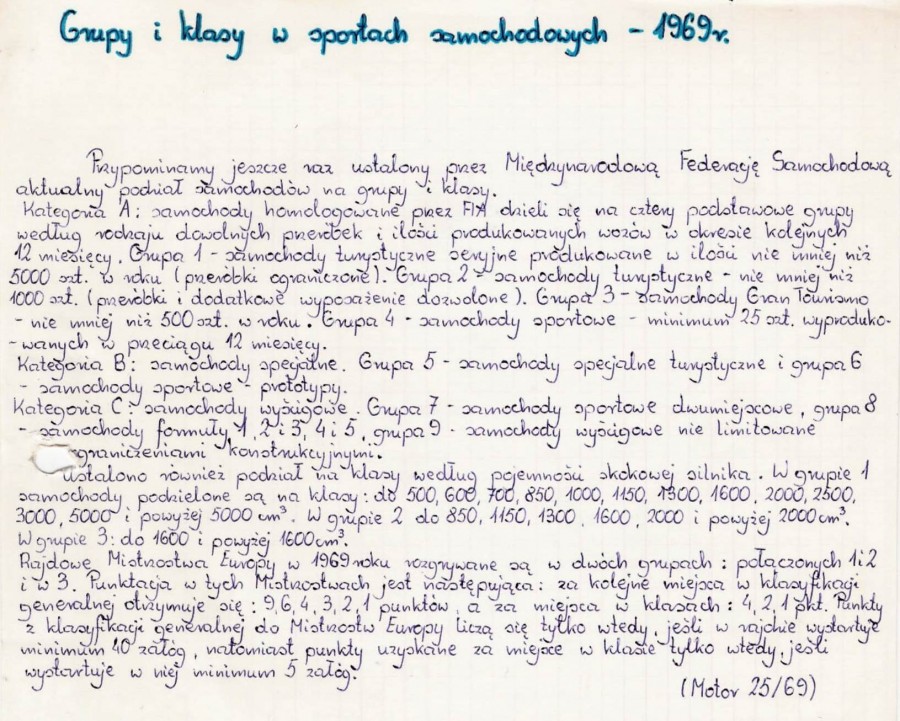 Grupy i klasy w sportach samochodowych - 1969r.
Przypominamy jeszcze raz ustalony przez Międzynarodową Federację Samochodową
aktualny podział samochodów na grupy i klasy.
Kategoria A: samochody homologowane przez FIA dzieli się na cztery podstawowe grupy
według rodzaju dowolnych przeróbek i ilości produkowanych wozów w okresie kolejnych
12 miesięcy. Grupa 1 - samochody turystyczne seryjne produkowane w ilości nie mniej niż
5000 szt. w roku (przeróbki ograniczone). Grupa 2 - samochody turystyczne - nie mniej niż
1000 szt. (przeróbki i dodatkowe wyposażenie dozwolone). Grupa 3 - samochody Gran Tourismo
- nie mniej niż 500 szt. w roku. Grupa 4 - samochody sportowe - minimum 25 szt. wyproduko-
-wanych w przeciągu 12 miesięcy.
Kategoria B: samochody specjalne. Grupa 5 - samochody specjalne turystyczne i grupa 6
- samochody sportowe - prototypy.
Kategoria C: samochody wyścigowe. Grupa 7 - samochody sportowe dwumiejscowe, grupa 8
- samochody formuły 1, 2 i 3, 4 i 5, grupa 9 - samochody wyścigowe nie limitowane
ograniczeniami konstrukcyjnymi.
Ustalono również podział na klasy według pojemności skokowej silnika. W grupie 1
samochody podzielone są na klasy: do 500, 600, 700, 850, 1000, 1150, 1300, 1600, 2000, 2500,
3000, 5000 i powyżej 5000 cm³. W grupie 2 do 850, 1150, 1300, 1600, 2000 i powyżej 2000 cm³.
W grupie 3: do 1600 i powyżej 1600 cm³.
Rajdowe Mistrzostwa Europy w 1969 roku rozgrywane są w dwóch grupach: połączonych 1 i 2
i w 3. Punktacja w tych Mistrzostwach jest następująca: za kolejne miejsca w klasyfikacji
generalnej otrzymuje się: 9, 6, 4, 3, 2, 1 punktów, a za miejsca w klasach: 4, 2, 1 pkt. Punkty
z klasyfikacji generalnej do Mistrzostw Europy liczą się tylko wtedy, jeśli w rajdzie wystartuje
minimum 40 załóg, natomiast punkty uzyskane za miejsce w klasie tylko wtedy, jeśli
wystartuje w niej minimum 5 załóg.
(Motor 25/69)